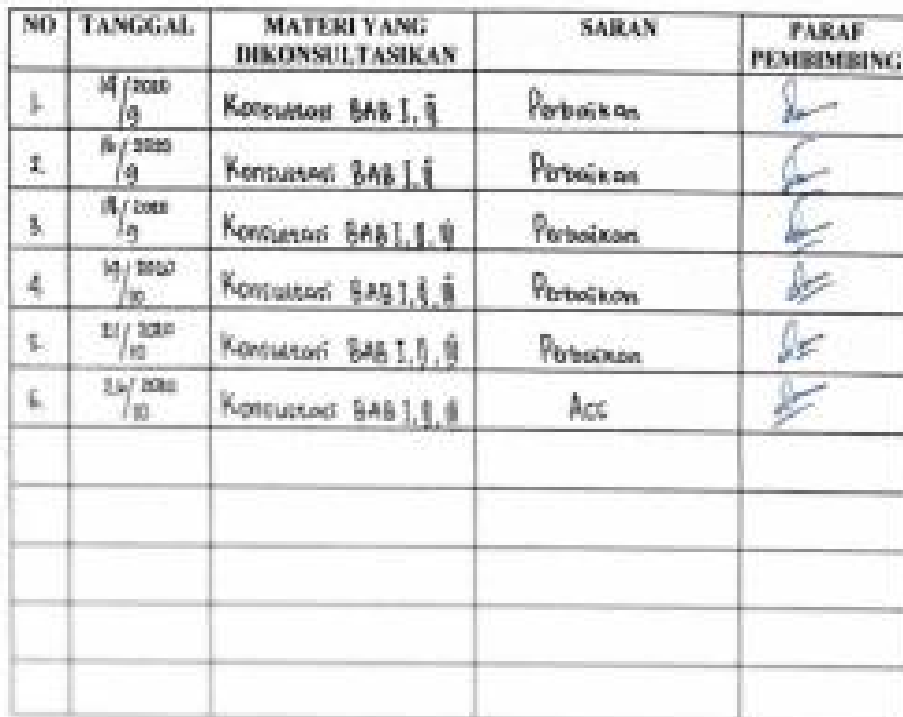 NO TANGGAL MATERI YANG DIKONSULTASIKAN SARAN PARAF PEMBIMBING
1. /2020 /9 Konsultasi BAB I, II Perbaikan
2. /2020 /9 Konsultasi BAB I, II Perbaikan
3. /2020 /9 Konsultasi BAB I, II, III Perbaikan
4. /2020 /10 Konsultasi BAB I, II, III Perbaikan
5. 21/2020 /10 Konsultasi BAB I, II, III Perbaikan
6. /2020 /10 Konsultasi BAB I, II, III Acc